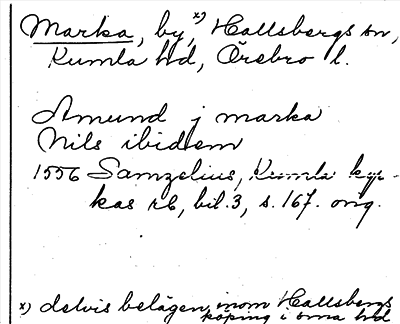 Marka, by, x) Hallsbergs sn,
Kumla hd, Örebro l.
Amund j marka
Nils ibidem
1556 Samzelius, Kumla kyr-
kas rb, bil. 3, s. 167. orig.
x) delvis belägen inom Hallsbergs
köping i sma hd